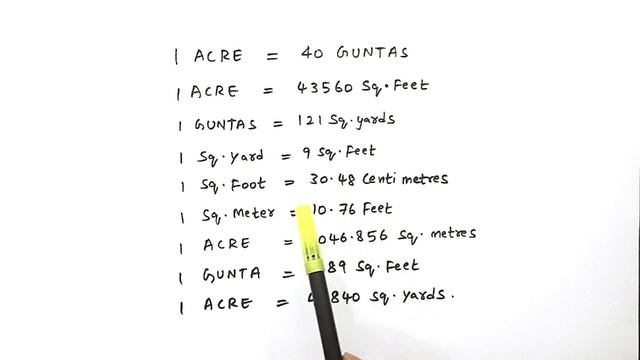 1 ACRE = 40 GUNTAS
1 ACRE = 43560 Sq.Feet
1 GUNTAS = 121 Sq.yards
1 Sq.Yard = 9 Sq.Feet
1 Sq.Foot = 30.48 Centi metres
1 Sq.Meter = 10.76 Feet
1 ACRE = 046.856 Sq.metres
1 GUNTA = 89 Sq.Feet
1 ACRE = 4840 Sq.yards.